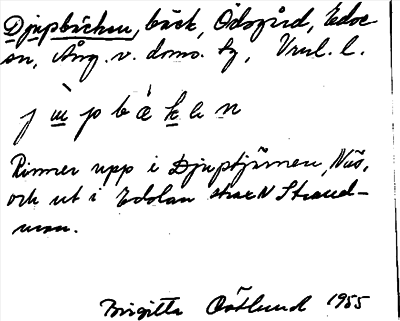 Djupbäcken, bäck, Ödsgård, Edsle
en, Ång. v. doms. hg, Vml. l.
j ụ̀ p b ä́ k e n
Rinner upp i Djuptjärnen, Näs,
och ut i Edslan strax N Strand-
man.
Birgitta Östlund 1955